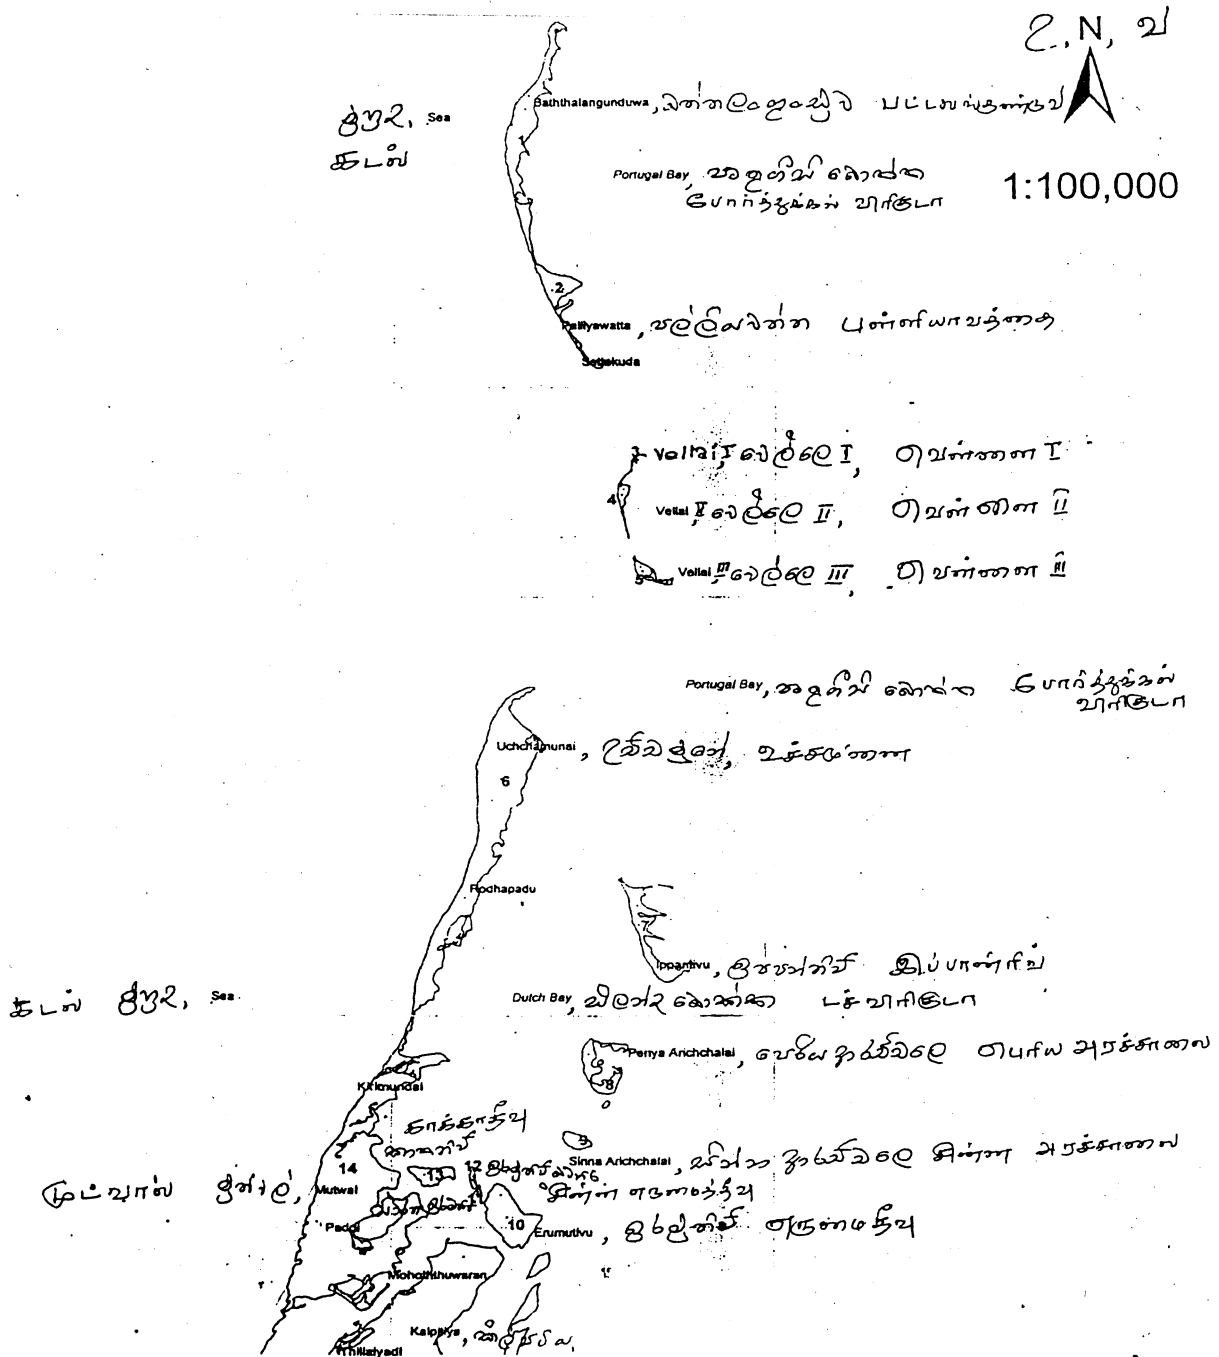 උ, N, வ
Baththalangunduwa, බත්තලංගුංඩුව பட்டலங்குண்டுவ
මුහුද, Sea
கடல்
Portugal Bay, පෘතුගීසි බොක්ක
போர்த்துக்கல் விரிகுடா
1:100,000
2
Palliyawatta, පල්ලියවත්ත புள்ளியாவத்தை
Settakuda
3 Vellai I වෙල්ලෙ I, வெள்ளை I
4 Vellai II වෙල්ලෙ II, வெள்ளை II
Vellai III වෙල්ලෙ III, வெள்ளை III
Portugal Bay, පෘතුගීසි බොක්ක போர்த்துக்கல்
விரிகுடா
Uchchamunai, උච්චමුනේ, உச்சமுனை
6
Rodhapadu
7
Ippantivu, ඉප්පන්තිව්
கடல் මුහුද, Sea
Dutch Bay, ඕලන්ද බොක්ක டச் விரிகுடா
Periya Arichchalai, පෙරිය ආරච්චලෙ பெரிய அரச்சாலை
8
Kirimundai
காக்காதீவு
කාකතිව්
9
Sinna Arichchalai, සින්න ආරච්චලෙ சின்ன அரச்சாலை
14
13
12
சின்ன எருமைத்தீவு
முட்வால் මුත්වල්, Mutwal
Paddi
10
Erumutivu, ඉරමුතිව් எருமைதீவு
Mohoththuwaran
11
Kalpitiya, කල්පිටිය,
Thillaiyadi